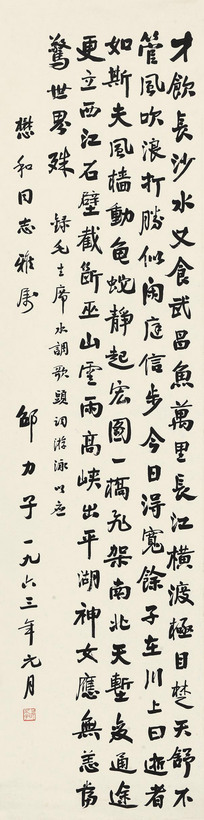 才飲長沙水又食武昌魚萬里長江橫渡極目楚天舒不
管風吹浪打勝似閑庭信步今日得寬餘子在川上曰逝者
如斯夫風檣動龜蛇靜起宏圖一橋飛架南北天塹變通途
更立西江石壁截斷巫山雲雨高峽出平湖神女應無恙當
驚世界殊 錄毛主席水調歌頭詞游泳以应
懋和同志雅屬 邵力子一九六三年元月